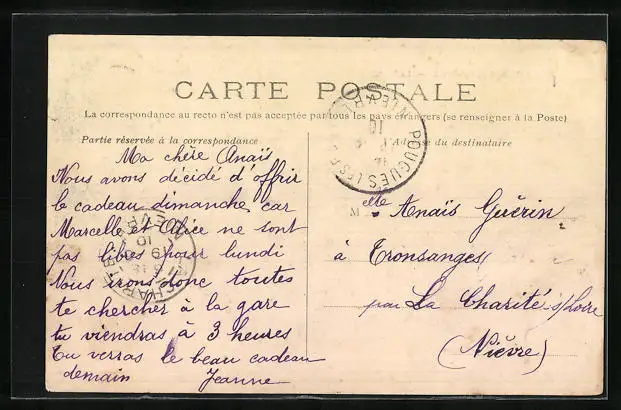 CARTE POSTALE
La correspondance au recto n'est pas acceptée par tous les pays étrangers (se renseigner à la Poste)
Partie réservée à la correspondance
Adresse du destinataire
Ma chère Anaïs
Nous avons décidé d'offrir
le cadeau dimanche, car
Marcelle et Alice ne sont
pas libres pour lundi
Nous irons donc toutes
te chercher à la gare
tu viendras à 3 heures
Tu verras le beau cadeau
demain Jeanne
Melle Anaïs Guérin
à Tronsanges
par La Charité s/Loire
(Nièvre)
POUGUES LES
NIEVRE
10